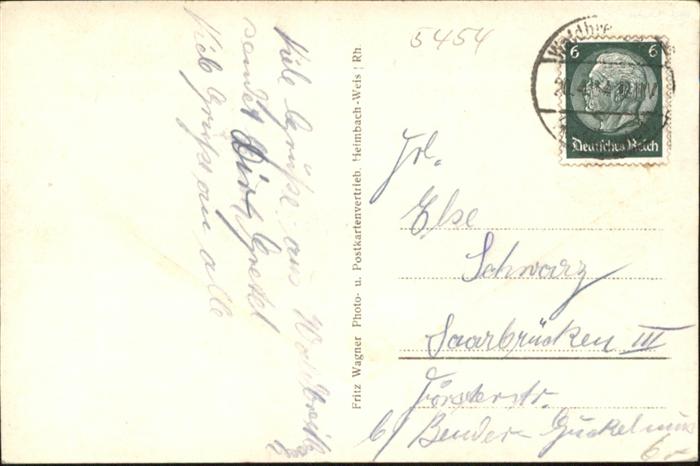 5454
6 6
Deutsches Reich
Frl.
Else
Schwarz
Saarbrücken III
Försterstr.
b/ Bender
Viele Grüße aus
sendet Dir
Viele Grüße an alle
Fritz Wagner Photo- u. Postkartenvertrieb. Heimbach-Weis / Rh.